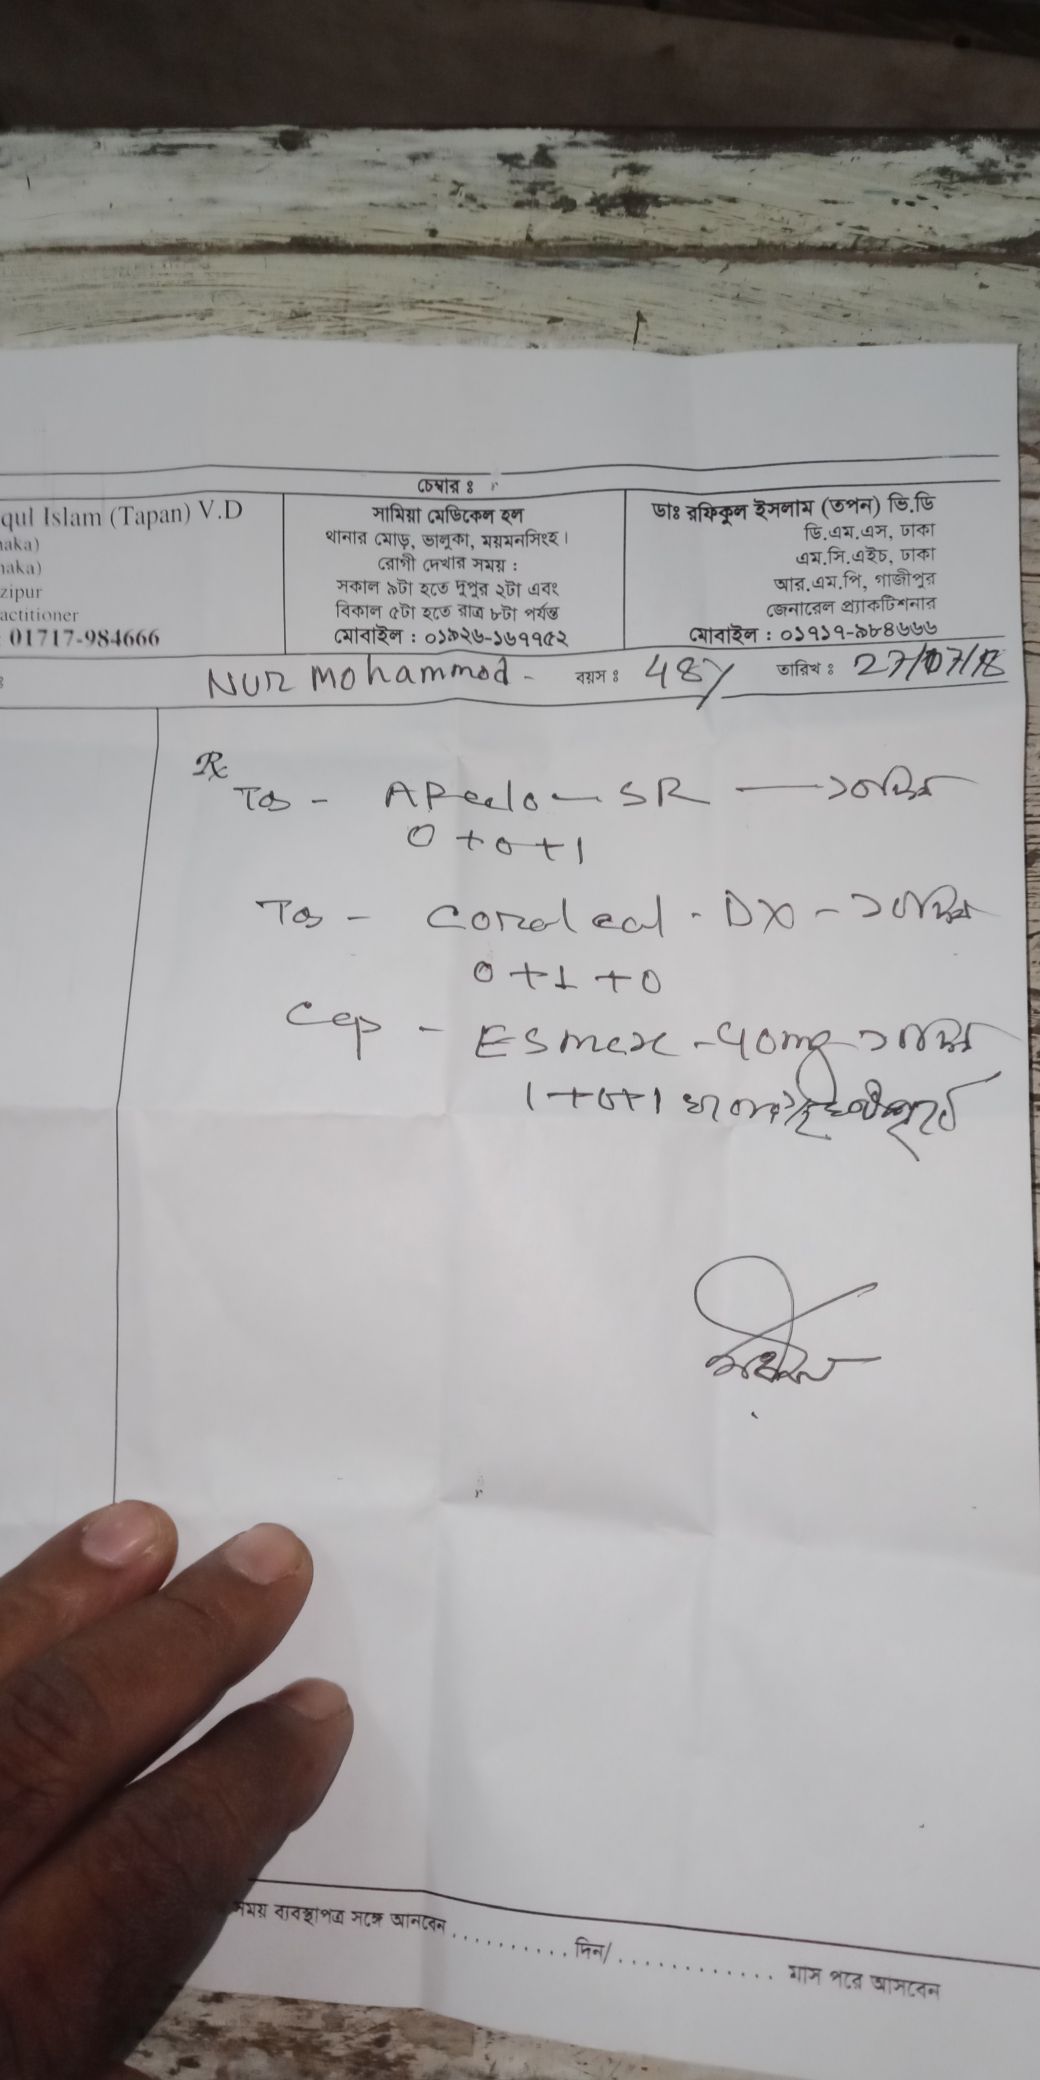 চেম্বার ঃ
qul Islam (Tapan) V.D
haka)
haka)
zipur
actitioner
: 01717-984666
সামিয়া মেডিকেল হল
থানার মোড়, ভালুকা, ময়মনসিংহ।
রোগী দেখার সময় :
সকাল ৯টা হতে দুপুর ২টা এবং
বিকাল ৫টা হতে রাত্র ৮টা পর্যন্ত
মোবাইল : ০১৯২৬-১৬৭৭৫২
ডাঃ রফিকুল ইসলাম (তপন) ভি.ডি
ডি.এম.এস, ঢাকা
এম.সি.এইচ, ঢাকা
আর.এম.পি, গাজীপুর
জেনারেল প্র্যাকটিশনার
মোবাইল : ০১৭১৭-৯৮৪৬৬৬
NUR Mohammod - বয়স ঃ 48y তারিখ ঃ 27/07/18
Rx
Tab - SR — ১০দিন
0+0+1
Tab - DX - ১০দিন
0+1+0
Cap - ESmax - 40mg ১০দিন
1+0+1
সময় ব্যবস্থাপত্র সঙ্গে আনবেন .......... দিন/ ............ মাস পরে আসবেন